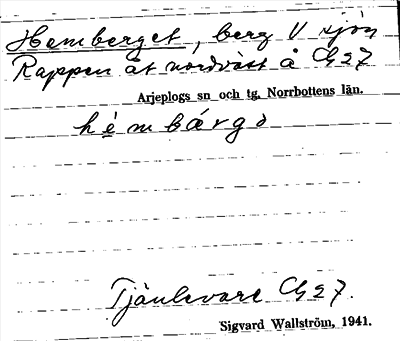 Hemberget, berg V sjön
Rappen åt nordväst å Cg 27
Arjeplogs sn och tg. Norrbottens län.
hèmbárgə
Tjäulevare Cg 27.
Sigvard Wallström, 1941.